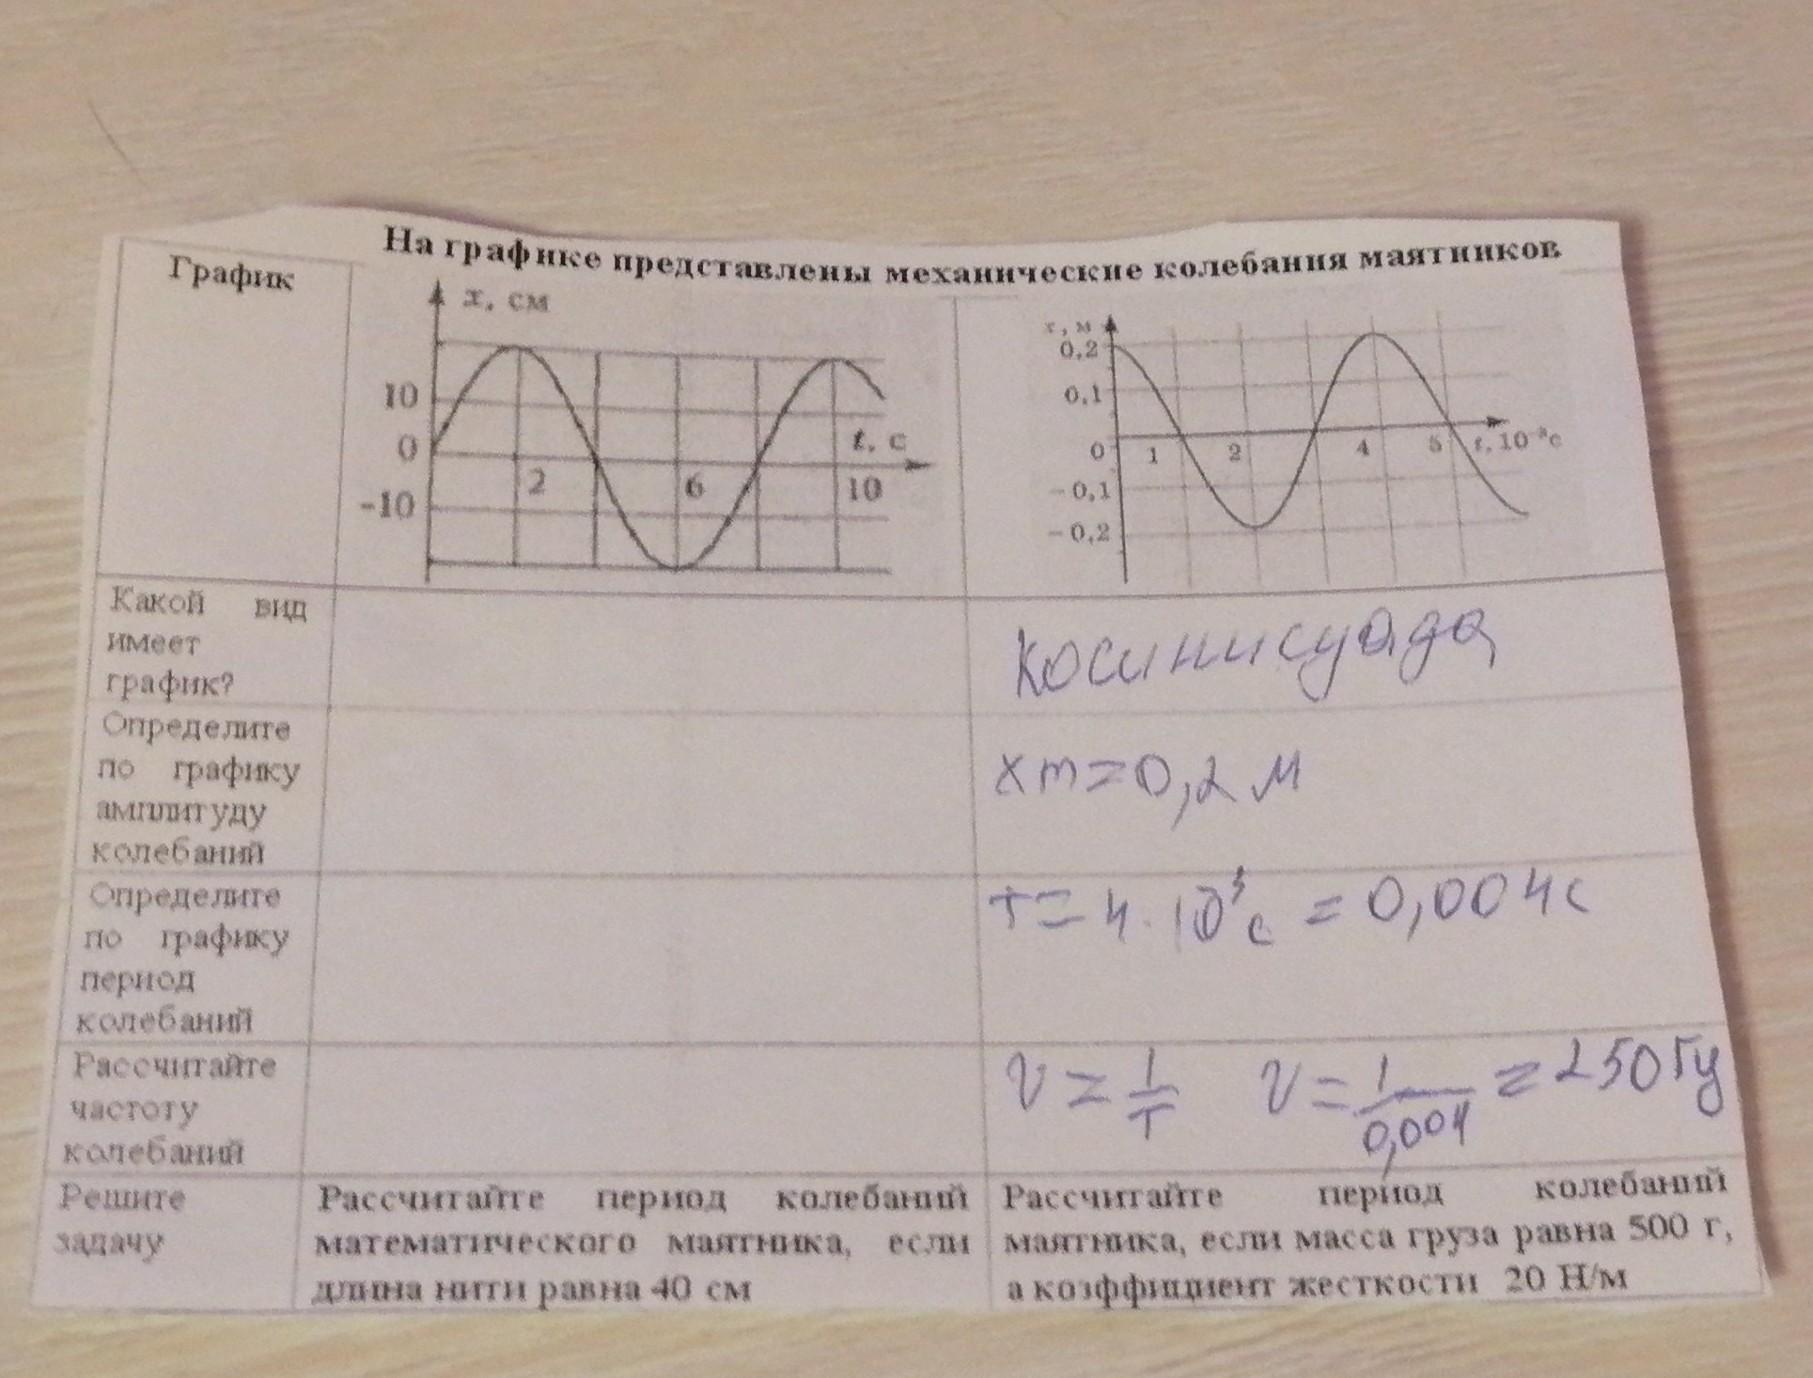 На графике представлены механические колебания маятников
График
x, см
10
0
-10
2
6
10
t, с
x, м
0,2
0,1
0
-0,1
-0,2
1
2
4
5
t, 10⁻³с
Какой вид
имеет
график?
косинисуада
Определите
по графику
амплитуду
колебаний
xm=0,2 м
Определите
по графику
период
колебаний
T= 4·10³с = 0,004с
Рассчитайте
частоту
колебаний
ν = 1/T ν = 1/0,004 = 250 Гц
Решите
задачу
Рассчитайте период колебаний
математического маятника, если
длина нити равна 40 см
Рассчитайте период колебаний
маятника, если масса груза равна 500 г,
а коэффициент жесткости 20 Н/м